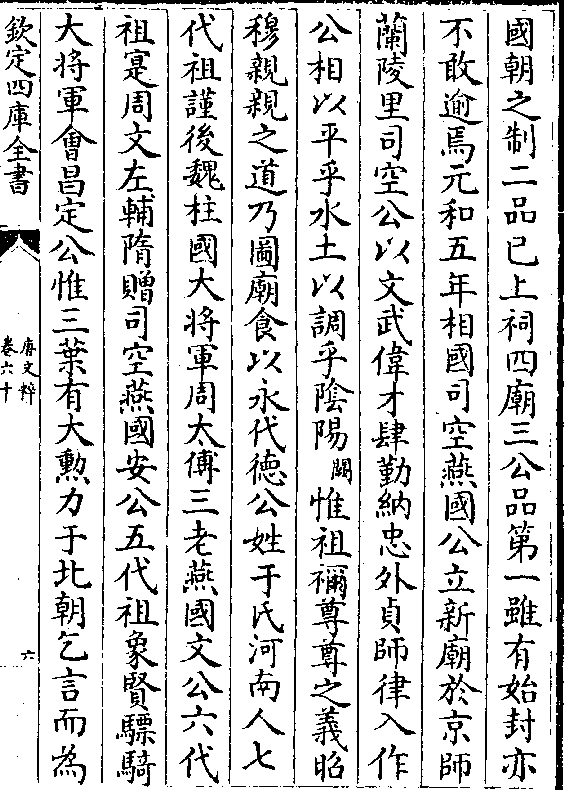 國朝之制二品已上祠四廟三公品第一雖有始封亦
不敢逾焉元和五年相國司空燕國公立新廟於京師
蘭陵里司空公以文武偉才肆勤納忠外貞師律入作
公相以平乎水土以調乎陰陽闕惟祖禰尊尊之義昭
穆親親之道乃圖廟食以永代德公姓于氏河南人七
代祖謹後魏柱國大將軍周太傅三老燕國文公六代
祖寔周文左輔隋贈司空燕國安公五代祖象賢驃騎
大將軍會昌定公惟三葉有大勲力于北朝乞言而為
欽定四庫全書
唐文粹
卷六十
六